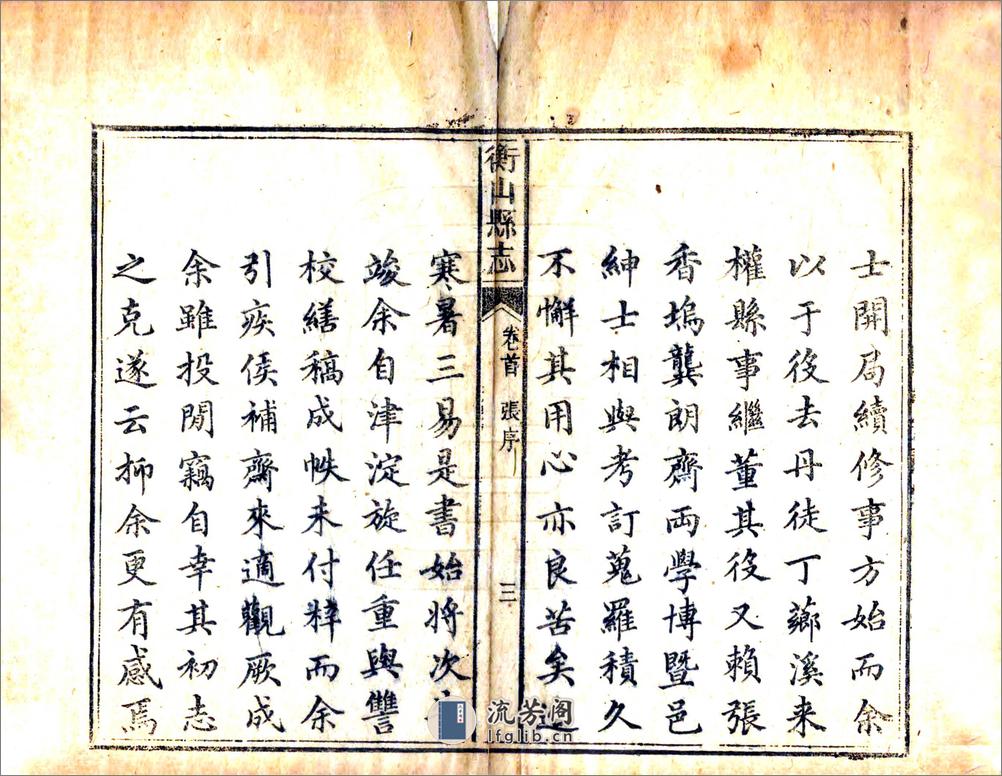 士開局續修事方始而余
以于役去丹徒丁薌溪来
權縣事繼董其役又賴張
香塢龔朗齋両學博暨邑
紳士相與考訂蒐羅積久
不懈其用心亦良苦矣
衡山縣志
卷首
張序
三
寒暑三易是書始將次
竣余自津淀旋任重與讐
校繕稿成帙未付梓而余
引疾侯補齋來適觀厥成
余雖投閒竊自幸其初志
之克遂云抑余更有感焉
流芳阁
lfglib.cn